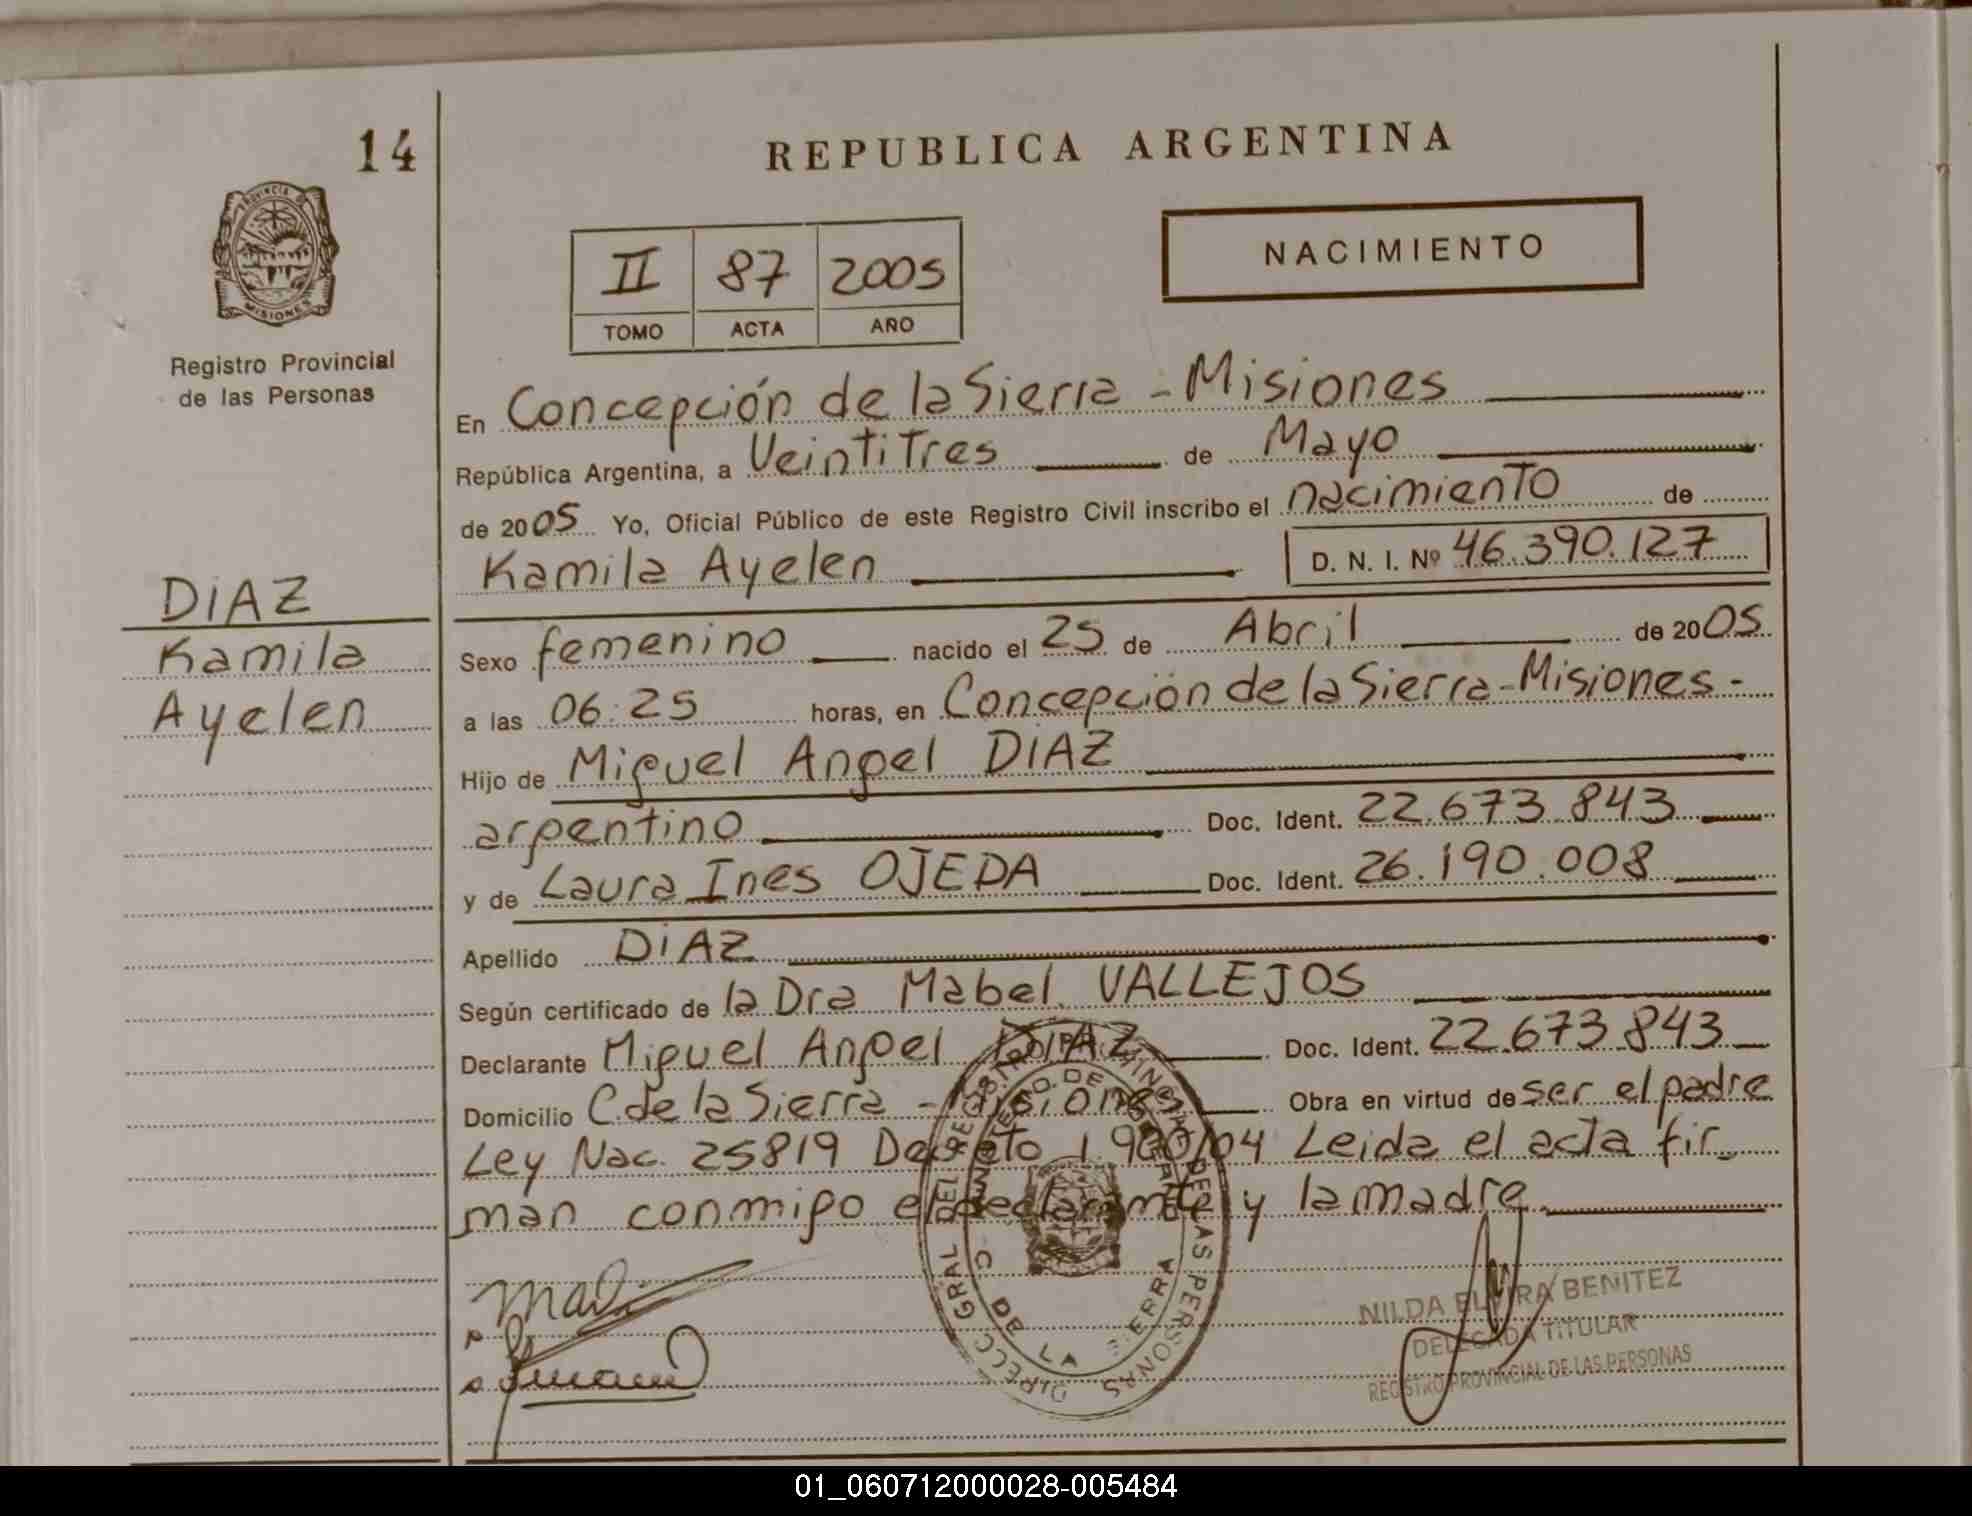 14
REPUBLICA ARGENTINA
PROVINCIA DE
MISIONES
Registro Provincial
de las Personas
NACIMIENTO
II 87 2005
TOMO ACTA AÑO
En Concepción de la Sierra - Misiones
República Argentina, a Veintitres de Mayo
de 2005 Yo, Oficial Público de este Registro Civil inscribo el nacimiento de
Kamila Ayelen D. N. I. Nº 46.390.127
DIAZ
Kamila
Ayelen
Sexo femenino nacido el 25 de Abril de 2005
a las 06:25 horas, en Concepción de la Sierra-Misiones-
Hijo de Miguel Angel DIAZ
argentino Doc. Ident. 22.673.843
y de Laura Ines OJEDA Doc. Ident. 26.190.008
Apellido DIAZ
Según certificado de la Dra Mabel VALLEJOS
Declarante Miguel Angel DIAZ Doc. Ident. 22.673.843
Domicilio C. de la Sierra - Misiones Obra en virtud de ser el padre
Ley Nac. 25819 Decreto 1.900/04 Leida el acta fir-
man conmigo el declarante y la madre.
DIRECC. GRAL DEL REG. DE LAS PERSONAS
C. DE LA SIERRA
NILDA ELVIRA BENITEZ
DELEGADA TITULAR
REGISTRO PROVINCIAL DE LAS PERSONAS
01_060712000028-005484